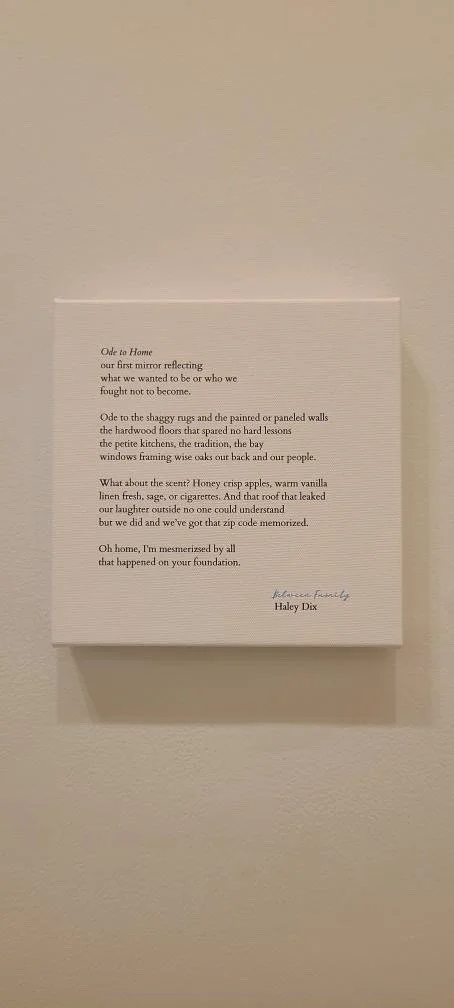 Ode to Home
our first mirror reflecting
what we wanted to be or who we
fought not to become.
Ode to the shaggy rugs and the painted or paneled walls
the hardwood floors that spared no hard lessons
the petite kitchens, the tradition, the bay
windows framing wise oaks out back and our people.
What about the scent? Honey crisp apples, warm vanilla
linen fresh, sage, or cigarettes. And that roof that leaked
our laughter outside no one could understand
but we did and we've got that zip code memorized.
Oh home, I'm mesmerizsed by all
that happened on your foundation.
Between Family
Haley Dix